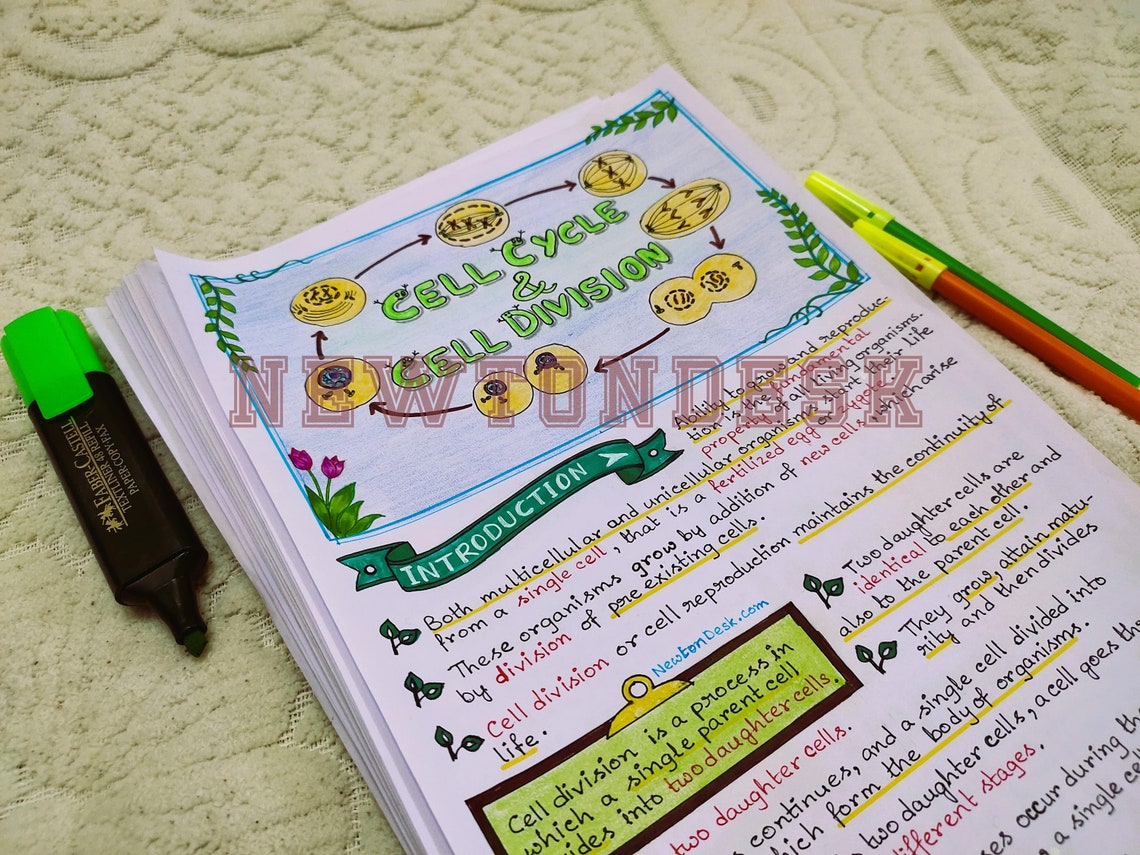 CELL CYCLE
&
CELL DIVISION
NEWTONDESK
Ability to grow and reproduc-
tion is the fundamental
property of all living organisms.
INTRODUCTION
Both multicellular and unicellular organisms start their life
from a single cell, that is a fertilized egg or zygote.
These organisms grow by addition of new cells which arise
by division of pre existing cells
Cell division or cell reproduction maintains the continuity of
life.
NewtonDesk.com
Cell division is a process in
which a single parent cell
ides into two daughter cells.
Two daughter cells are
identical to each other and
also to the parent cell.
They grow, attain matu-
rily and then divides
two daughter cells.
continues, and a single cell divided into
form the body of organisms.
two daughter cells, a cell goes
different stages.
occur during
a single
FABER-CASTELL
TEXTLINER 48 REFILL
PAPER·COPY·FAX